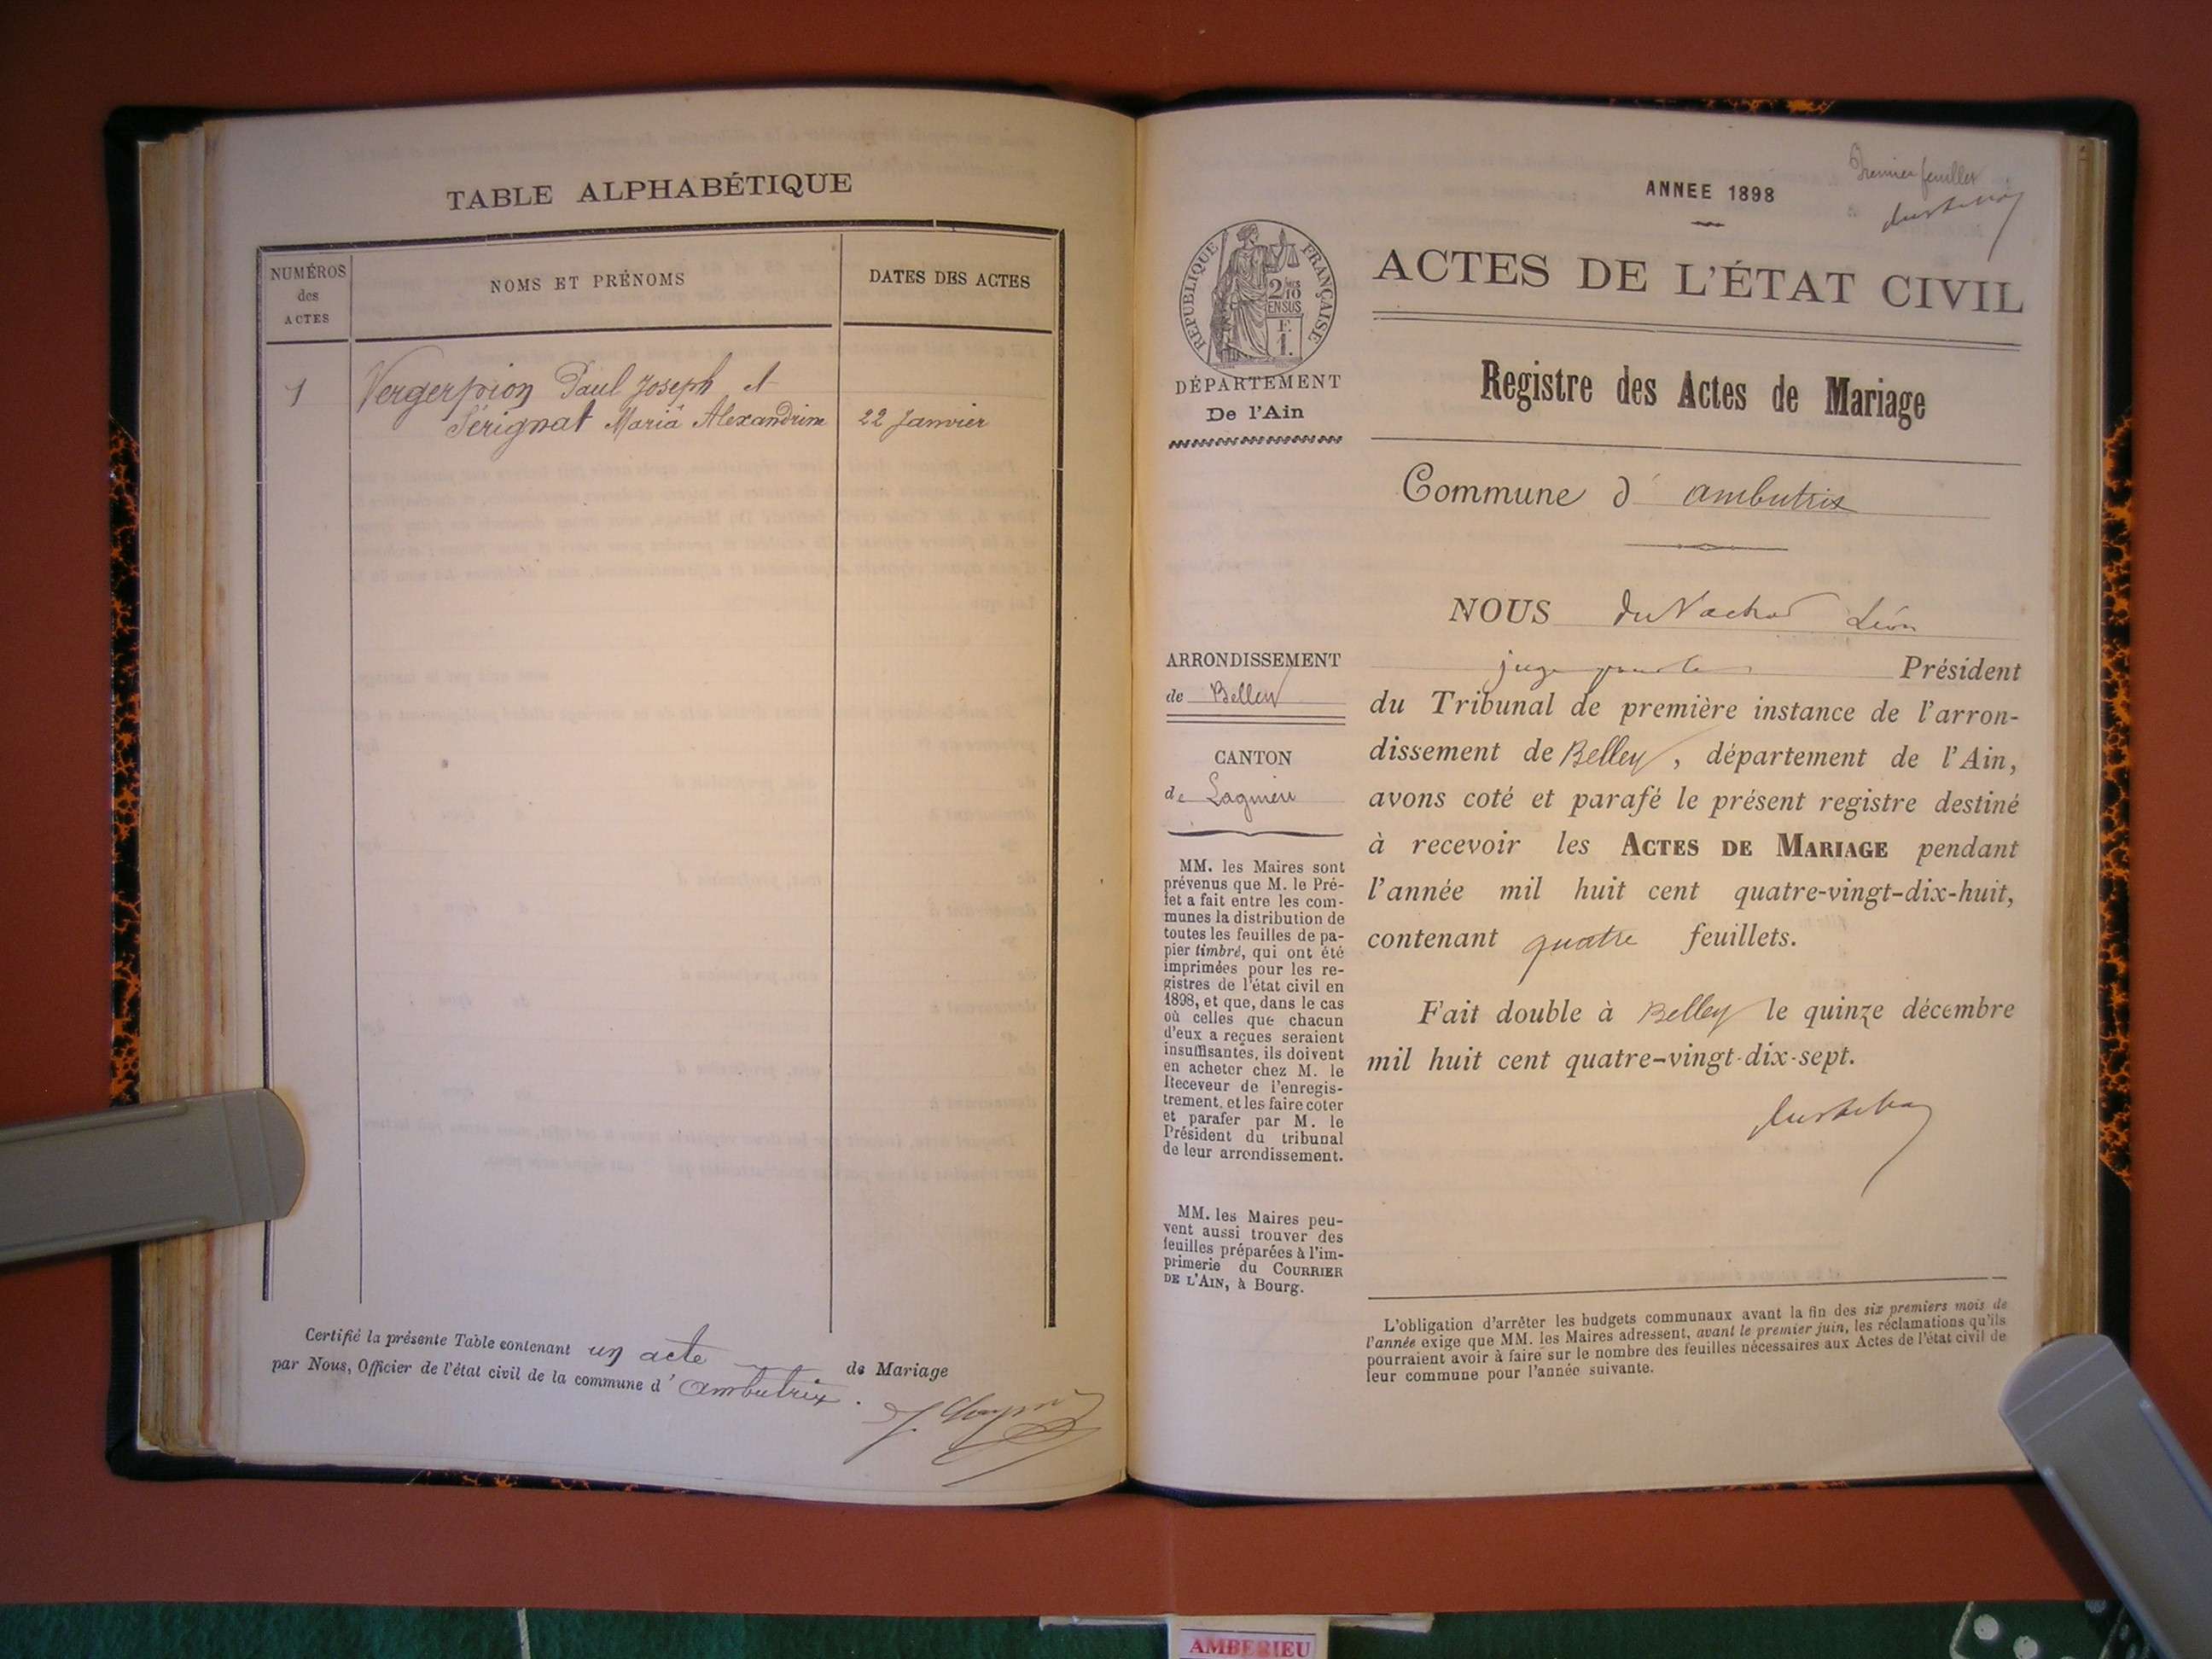 TABLE ALPHABÉTIQUE
NUMÉROS
des
ACTES
NOMS ET PRÉNOMS
DATES DES ACTES
1
Paul Joseph et
Sérignat Maria Alexandrine
22 Janvier
Certifié la présente Table contenant un acte de Mariage
par Nous, Officier de l'état civil de la commune d' Ambutrix.
Premier feuillet
ANNEE 1898
RÉPUBLIQUE FRANÇAISE
2/10
EN SUS
F.
1.
DÉPARTEMENT
De l'Ain
ACTES DE L'ÉTAT CIVIL
Registre des Actes de Mariage
Commune d' ambutrix
ARRONDISSEMENT
de Belley
CANTON
de Lagnieu
MM. les Maires sont
prévenus que M. le Pré-
fet a fait entre les com-
munes la distribution de
toutes les feuilles de pa-
pier timbré, qui ont été
imprimées pour les re-
gistres de l'état civil en
1898, et que, dans le cas
où celles que chacun
d'eux a reçues seraient
insuffisantes, ils doivent
en acheter chez M. le
Receveur de l'enregis-
trement, et les faire coter
et parafer par M. le
Président du tribunal
de leur arrondissement.
MM. les Maires peu-
vent aussi trouver des
feuilles préparées à l'im-
primerie du COURRIER
DE L'AIN, à Bourg.
NOUS Léon
juge Président
du Tribunal de première instance de l'arron-
dissement de Belley, département de l'Ain,
avons coté et parafé le présent registre destiné
à recevoir les ACTES DE MARIAGE pendant
l'année mil huit cent quatre-vingt-dix-huit,
contenant quatre feuillets.
Fait double à Belley le quinze décembre
mil huit cent quatre-vingt-dix-sept.
L'obligation d'arrêter les budgets communaux avant la fin des six premiers mois de
l'année exige que MM. les Maires adressent, avant le premier juin, les réclamations qu'ils
pourraient avoir à faire sur le nombre des feuilles nécessaires aux Actes de l'état civil de
leur commune pour l'année suivante.
AMBERIEU